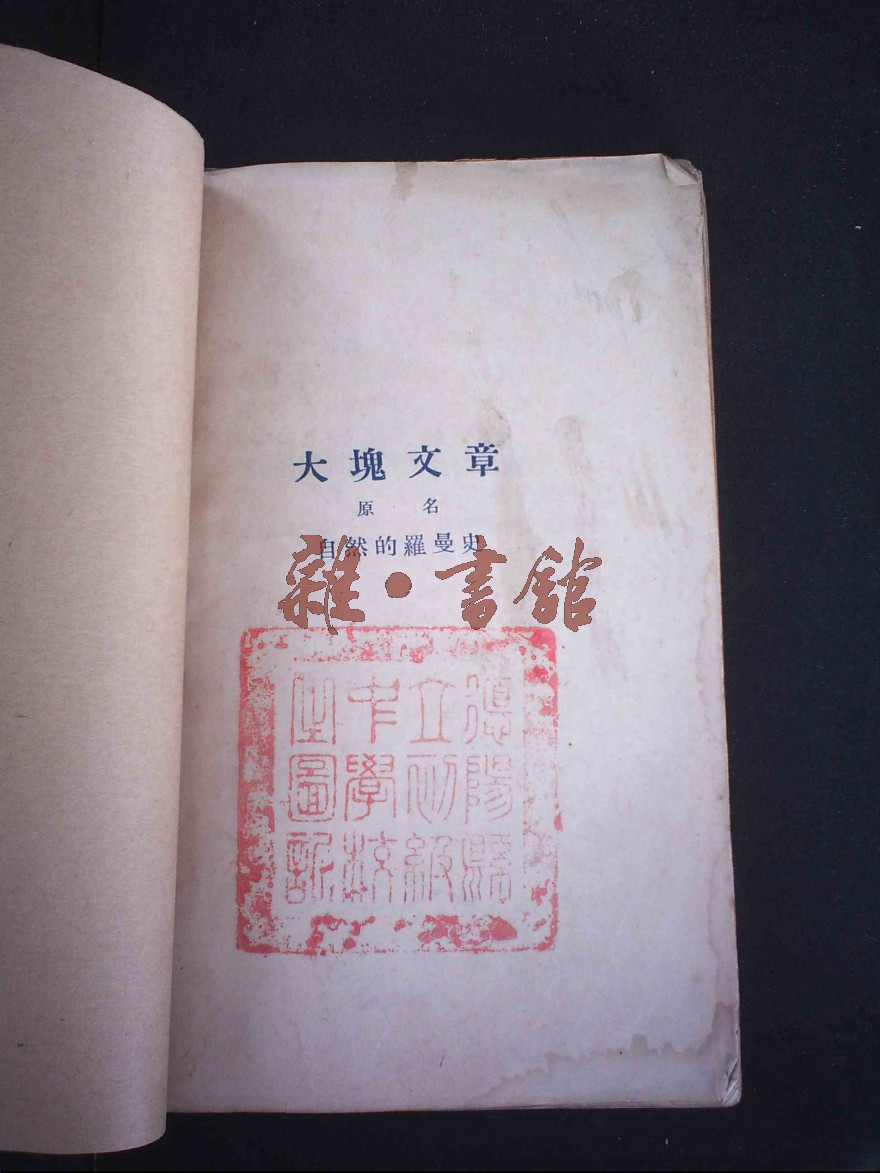 大塊文章
原名
自然的羅曼史
雜·書館
德陽縣
立初級
中學校
之圖記